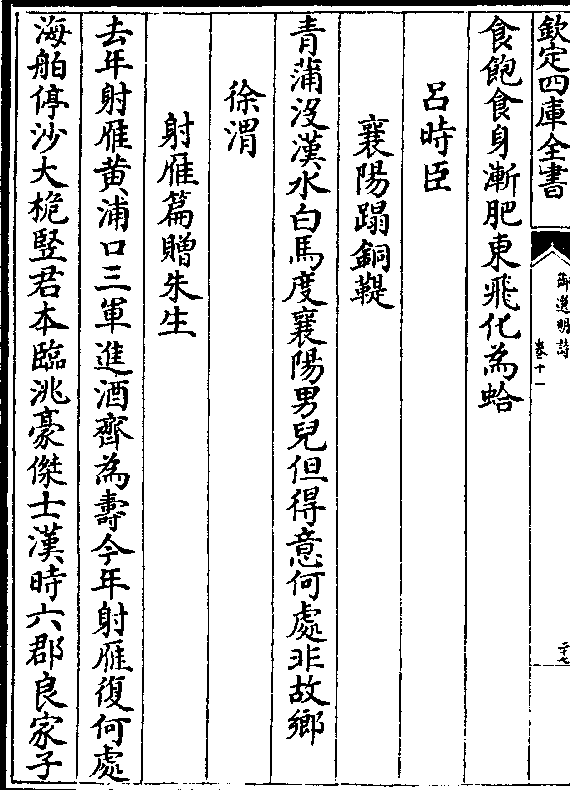 欽定四庫全書
御選明詩
卷十一
二十七
食飽食身漸肥東飛化為蛤
呂時臣
襄陽蹋銅鞮
青蒲沒漢水白馬度襄陽男兒但得意何處非故鄉
徐渭
射雁篇贈朱生
去年射雁黃浦口三軍進酒齊為壽今年射雁復何處
海舶停沙大桅豎君本臨洮豪傑士漢時六郡良家子